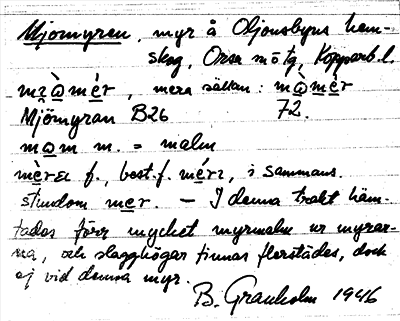 Mjömyren, myr å Oljonsbyns hem-
skog, Orsa sn o tg, Kopparb. l.
mò̤mér, mera sällan: mò̤mèr
Mjömyran B26 72.
mo̤m m. = malm
f., best. f. i sammans.
stundom mer. — I denna trakt häm-
tades förr mycket myrmalm ur myrar-
na, och slagghögar finnas flerstädes, dock
ej vid denna myr.
B. Granholm 1946